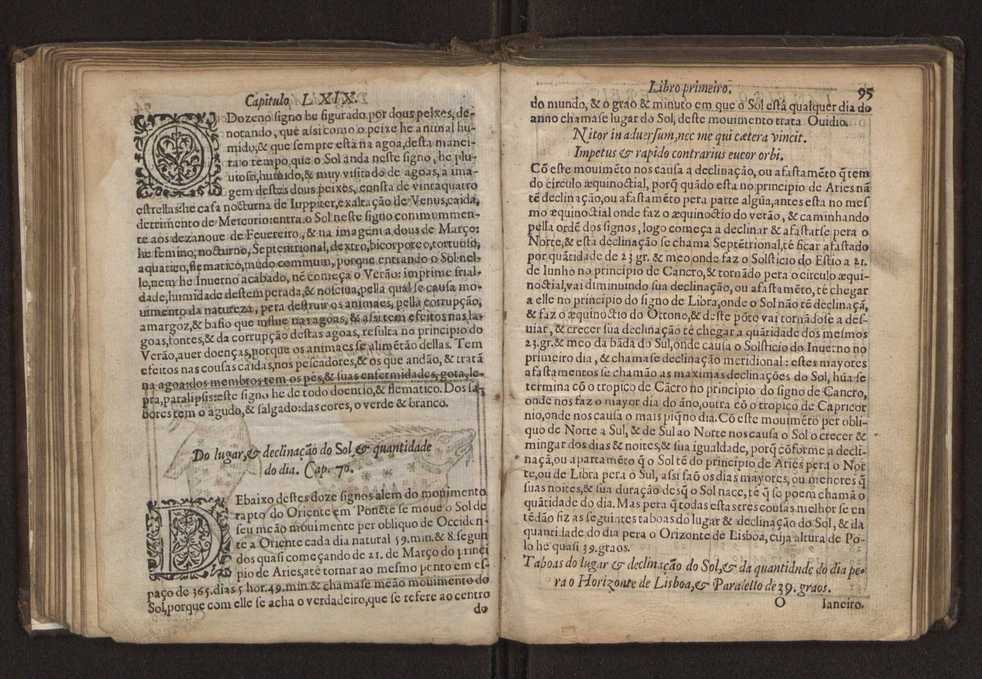 Capitulo LXIX.
O Dozeno signo he figurado por dous peixes, de-
notando, que assi como o peixe he animal hu-
mido, & que sempre està na agoa, desta manei-
ra o tempo, que o Sol anda neste signo, he plu-
uioso, humido, & muy visitado de agoas, a ima-
gem destes dous peixes, consta de vintaquatro
estrellas: he casa nocturna de Iuppiter, exaltação de Venus, caida,
detrimento de Mercorio: entra o Sol neste signo commummen-
te aos dezanoue de Feuereiro, & na imagem a dous de Março:
he femino, nocturno, Septentrional, dextro, bicorporeo, tortuoso,
aquatico, flematico, mudo commum, porque entrando o Sol nel-
le, nem he Inuerno acabado, nẽ começa o Verão: imprime frial-
dade, humidade destemperada, & nosciua, pella qual se causa mo-
uimento da natureza, pera destruir os animaes, pella corrupção,
amargoz, & bafio que influe nas agoas, & assi tem efeitos nas la-
goas, fontes, & da corrupção destas agoas, resulta no principio do
Verão, auer doenças, porque os animaes se alimẽtão dellas. Tem
efeitos nas cousas caidas, nos pescadores, & os que andão, & tratã
na agoa: dos membros tem os pès, & suas enfermidades, gota, le-
pra, paralipsis: este signo he de todo doentio, & flematico. Dos sa-
bores tem o agudo, & salgado: das cores, o verde & branco.
Do lugar, & declinação do Sol, & quantidade
do dia. Cap. 70.
DEbaixo destes doze signos alem do mouimento
rapto do Oriente em Poncte se moue o Sol de
seu meão mouimento per obliquo de Occiden-
te a Oriente cada dia natural 59. min. & 8. segun
dos quasi começando de 21. de Março do princi
pio de Aries, atè tornar ao mesmo ponto em es-
paço de 365. dias 5 hor. 49. min. & chamase meão mouimento do
Sol, porque com elle se acha o verdadeiro, que se refere ao centro
do
Libro primeiro. 95
do mundo, & o grao & minuto em que o Sol està qualquer dia do
anno chamase lugar do Sol, deste mouimento trata Ouidio.
Nitor in aduersum, nec me qui cætera vincit.
Impetus & rapido contrarius eueor orbi.
Cõ este mouimẽto nos causa a declinação, ou afastamẽto q̃ tem
do circulo æquinoctial, porq̃ quãdo està no principio de Aries nã
tẽ declinação, ou afastamẽto pera parte algũa, antes esta no mes
mo æquinoctial onde faz o æquinoctio do verão, & caminhando
pella ordẽ dos signos, logo começa a declinar & afastarse pera o
Norte, & esta declinação se chama Septẽtrional, tè ficar afastado
por quãtidade de 23 gr. & meo onde faz o Solsticio do Estio a 21.
de Iunho no principio de Cancro, & tornãdo pera o circulo æqui-
noctial, vai diminuindo sua declinação, ou afastamẽto, tè chegar
a elle no principio do signo de Libra, onde o Sol não tẽ declinaçã,
& faz o æquinoctio do Ottono, & deste põto vai tornãdose a des-
uiar, & crecer sua declinação tè chegar a quãtidade dos mesmos
23. gr. & meo da bãda do Sul, onde causa o Solsticio do Inuerno no
primeiro dia, & chamase declinação meridional: estes mayores
afastamentos se chamão as maximas declinações do Sol, hũa se
termina cõ o tropico de Cãcro no principio do signo de Cancro,
onde nos faz o mayor dia do ãno, outra cõ o tropico de Capricor
nio, onde nos causa o mais piq̃no dia. Cõ este mouimẽto per obli-
quo de Norte a Sul, & de Sul ao Norte nos causa o Sol o crecer &
mingar dos dias & noites, & sua igualdade, porq̃ cõforme a decli-
naçã, ou apartamẽto q̃ o Sol tẽ do principio de Aries pera o Nor
te, ou de Libra pera o Sul, assi saõ os dias mayores, ou menores q̃
suas noites, & sua duração desq̃ o Sol nace, tè q̃ se poem chamã o
quãtidade do dia. Mas pera q̃ todas estas tres cousas melhor se en
tẽdão fiz as seguintes taboas do lugar & declinação do Sol, & da
quantidade do dia pera o Orizonte de Lisboa, cuja altura de Po-
lo he quasi 39. graos.
Taboas do lugar & declinação do Sol, & da quantidade do dia pe-
ra o Horizonte de Lisboa, & Paralello de 39. graos.
O Ianeiro.